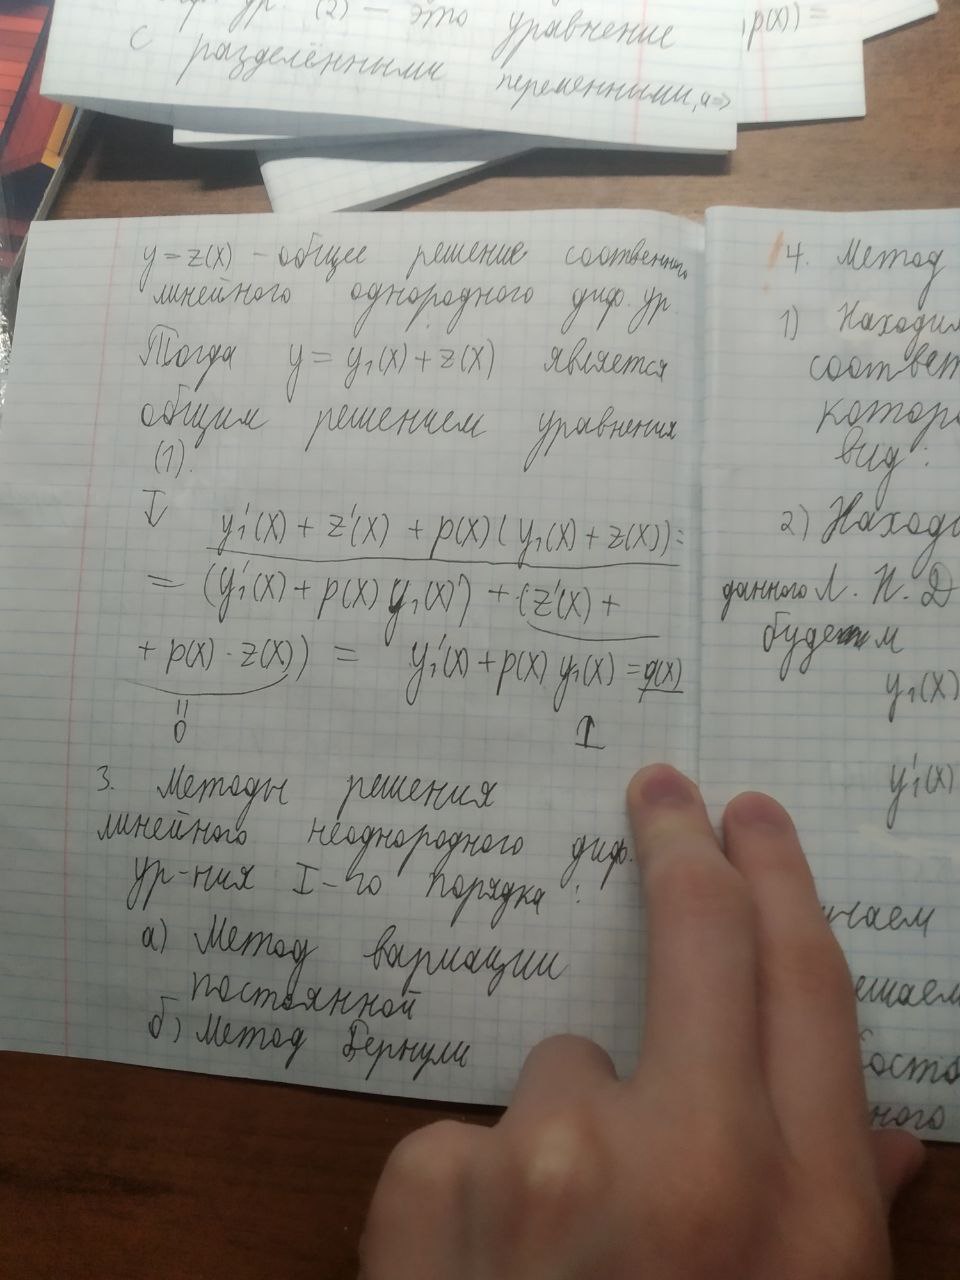 (2) – это уравнение
с разделёнными переменными, а =>
p(x) =
y = z(x) – общее решение соотвественно
линейного однородного диф. ур.
Тогда y = y₁(x) + z(x) является
общим решением уравнения
(1).
y₁'(x) + z'(x) + p(x)(y₁(x) + z(x)) =
= (y₁'(x) + p(x) y₁(x)) + (z'(x) +
+ p(x) · z(x)) = y₁'(x) + p(x) y₁(x) = q(x)
0
3. Методы решения
линейного неоднородного диф.
ур-ния I-го порядка:
а) Метод вариации
постоянной
б) Метод Бернули
4. Метод
1) Находим
соответ
которо
вид:
2) Находи
данного Л. Н. Д
будет
y₁(x)
y₁'(x)
чаем
ешаем
ного